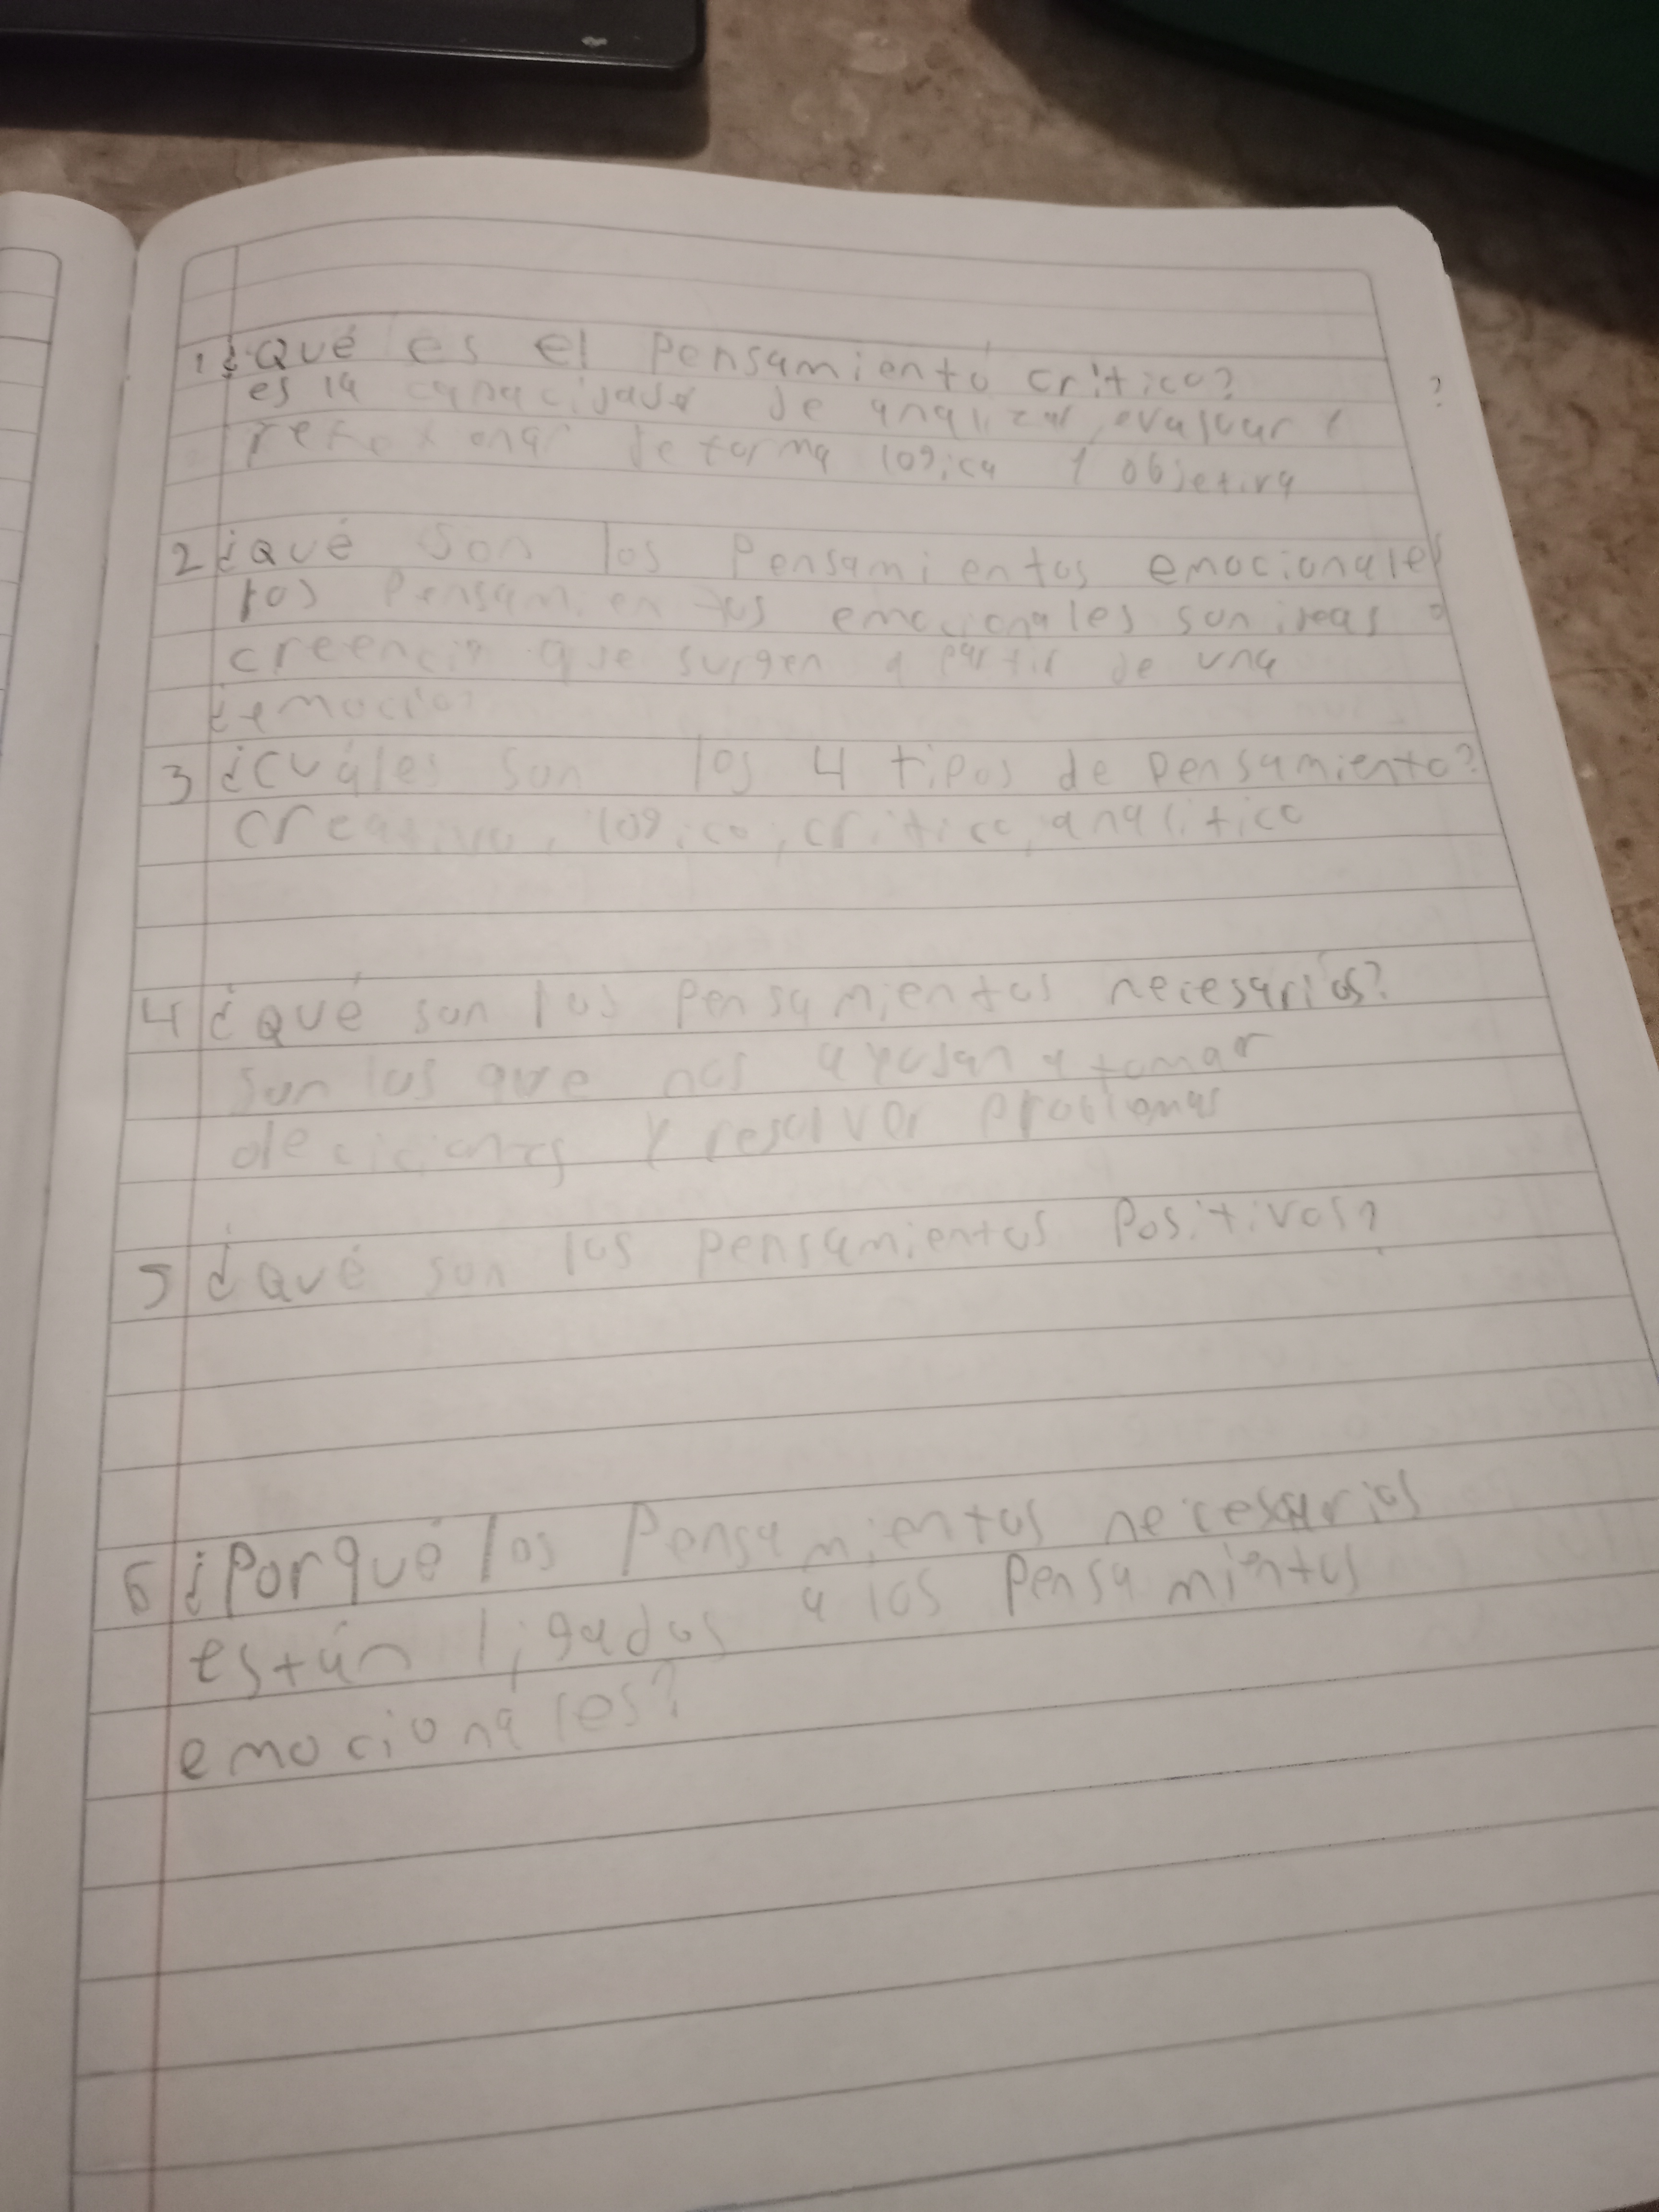 1 ¿Qué es el Pensamiento crítico?
es la capacidad de analizar, evaluar y
reflexionar de forma logica y objetiva
2 ¿Qué son los Pensamientos emocionales
?
los Pensamientos emocionales son ideas o
creencia que surgen a partir de una
emocion
3 ¿cuáles son los 4 tipos de pensamiento?
creativo, logico, critico, analitico
4 ¿Qué son los pensamientos necesarios?
son los que nos ayudan a tomar
deciciones y resolver problemas
5 ¿Qué son los pensamientos Positivos?
6 ¿Porqué los Pensamientos necesarios
están ligados a los Pensamientos
emocionales?